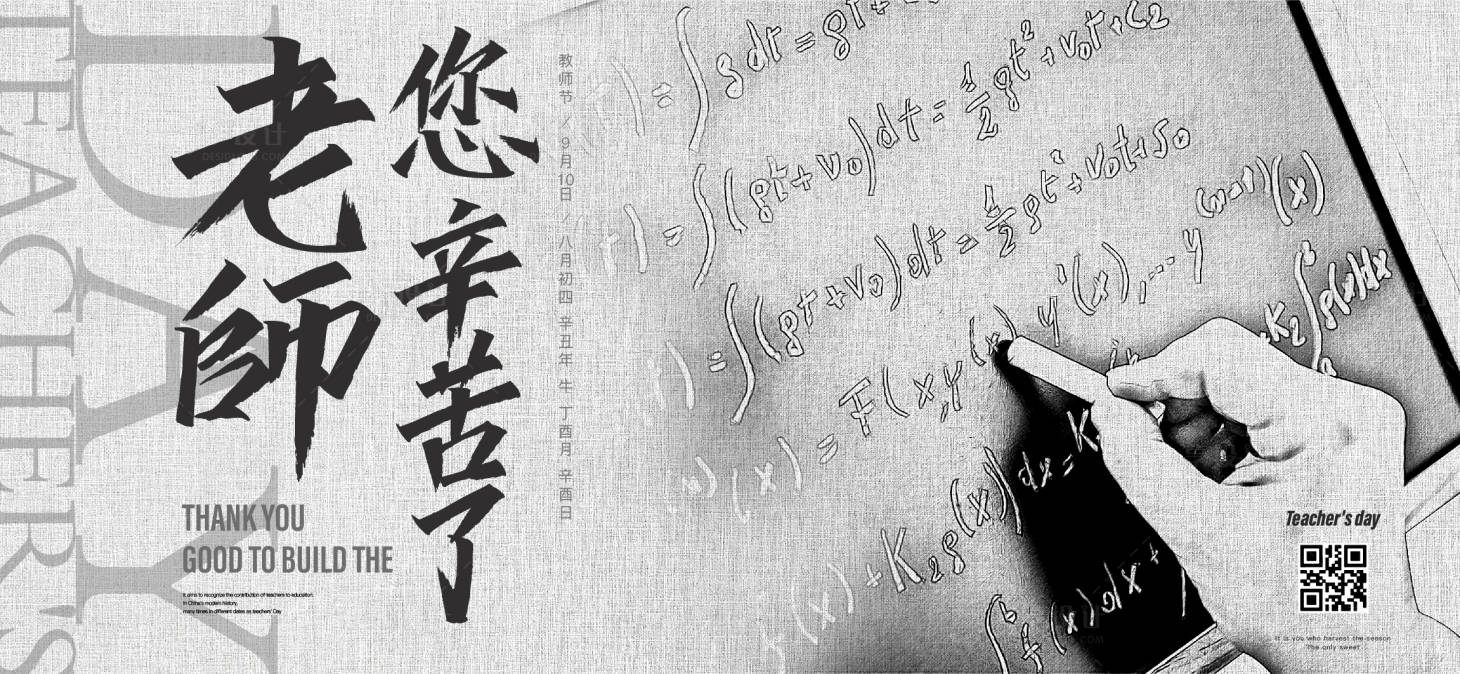 TEACHER'S
DAY
老師
您辛苦了
教师节 / 9月10日 / 八月初四 辛丑年 牛 丁酉月 辛酉日
THANK YOU
GOOD TO BUILD THE
It aims to recognize the contribution of teachers to education.
In China's modern history,
many times in different dates as teachers' Day
) = ∫ g dt = gt +
t) = ∫ (gt + v₀) dt = ½ gt² + v₀t + C₂
) = ∫ (gt + v₀) dt = ½ gt² + v₀t + s₀
(x) = F(x, y y'(x), ... y (n-1)(x)
(x) + K₂ g(x) dx = K K₂ ∫ g(x) dx
Teacher's day
It is you who harvest the season
The only sweet